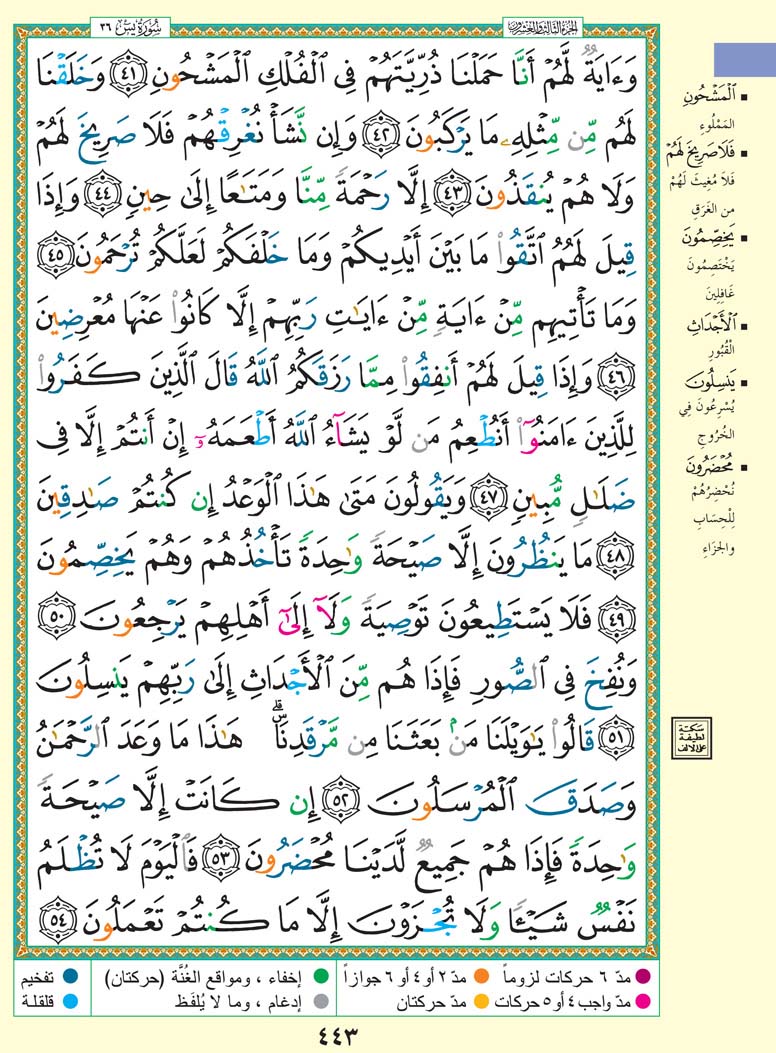 الجزء الثالث والعشرون
سورة يس ٣٦
وَءَايَةٌ لَّهُمْ أَنَّا حَمَلْنَا ذُرِّيَّتَهُمْ فِي الْفُلْكِ الْمَشْحُونِ ٤١ وَخَلَقْنَا
لَهُم مِّن مِّثْلِهِۦ مَا يَرْكَبُونَ ٤٢ وَإِن نَّشَأْ نُغْرِقْهُمْ فَلَا صَرِيخَ لَهُمْ
وَلَا هُمْ يُنقَذُونَ ٤٣ إِلَّا رَحْمَةً مِّنَّا وَمَتَٰعًا إِلَىٰ حِينٍ ٤٤ وَإِذَا
قِيلَ لَهُمُ اتَّقُوا۟ مَا بَيْنَ أَيْدِيكُمْ وَمَا خَلْفَكُمْ لَعَلَّكُمْ تُرْحَمُونَ ٤٥
وَمَا تَأْتِيهِم مِّنْ ءَايَةٍ مِّنْ ءَايَٰتِ رَبِّهِمْ إِلَّا كَانُوا۟ عَنْهَا مُعْرِضِينَ
٤٦ وَإِذَا قِيلَ لَهُمْ أَنفِقُوا۟ مِمَّا رَزَقَكُمُ اللَّهُ قَالَ الَّذِينَ كَفَرُوا۟
لِلَّذِينَ ءَامَنُوٓا۟ أَنُطْعِمُ مَن لَّوْ يَشَآءُ اللَّهُ أَطْعَمَهُۥٓ إِنْ أَنتُمْ إِلَّا فِي
ضَلَٰلٍ مُّبِينٍ ٤٧ وَيَقُولُونَ مَتَىٰ هَٰذَا الْوَعْدُ إِن كُنتُمْ صَٰدِقِينَ
٤٨ مَا يَنظُرُونَ إِلَّا صَيْحَةً وَٰحِدَةً تَأْخُذُهُمْ وَهُمْ يَخِصِّمُونَ
٤٩ فَلَا يَسْتَطِيعُونَ تَوْصِيَةً وَلَآ إِلَىٰٓ أَهْلِهِمْ يَرْجِعُونَ ٥٠
وَنُفِخَ فِي الصُّورِ فَإِذَا هُم مِّنَ الْأَجْدَاثِ إِلَىٰ رَبِّهِمْ يَنسِلُونَ
٥١ قَالُوا۟ يَٰوَيْلَنَا مَنۢ بَعَثَنَا مِن مَّرْقَدِنَاۜ ۗ هَٰذَا مَا وَعَدَ الرَّحْمَٰنُ
وَصَدَقَ الْمُرْسَلُونَ ٥٢ إِن كَانَتْ إِلَّا صَيْحَةً
وَٰحِدَةً فَإِذَا هُمْ جَمِيعٌ لَّدَيْنَا مُحْضَرُونَ ٥٣ فَالْيَوْمَ لَا تُظْلَمُ
نَفْسٌ شَيْـًٔا وَلَا تُجْزَوْنَ إِلَّا مَا كُنتُمْ تَعْمَلُونَ ٥٤
الْمَشْحُونِ
المَمْلُوءِ
فَلَا صَرِيخَ لَهُمْ
فَلَا مُغِيثَ لَهُمْ
من الغَرَقِ
يَخِصِّمُونَ
يَخْتَصِمُونَ
غَافِلِينَ
الْأَجْدَاثِ
الْقُبُورِ
يَنسِلُونَ
يُسْرِعُونَ فِي
الخُرُوجِ
مُحْضَرُونَ
نُحْضِرُهُمْ
لِلْحِسَابِ
والجَزَاءِ
سكتة
لطيفة
على الألف
مدّ ٦ حركات لزوماً
مدّ ٢ أو ٤ أو ٦ جوازاً
إخفاء ، ومواقع الغُنَّة (حركتان)
تفخيم
مدّ واجب ٤ أو ٥ حركات
مدّ حركتان
إدغام ، وما لا يُلفَظ
قلقلة
٤٤٣